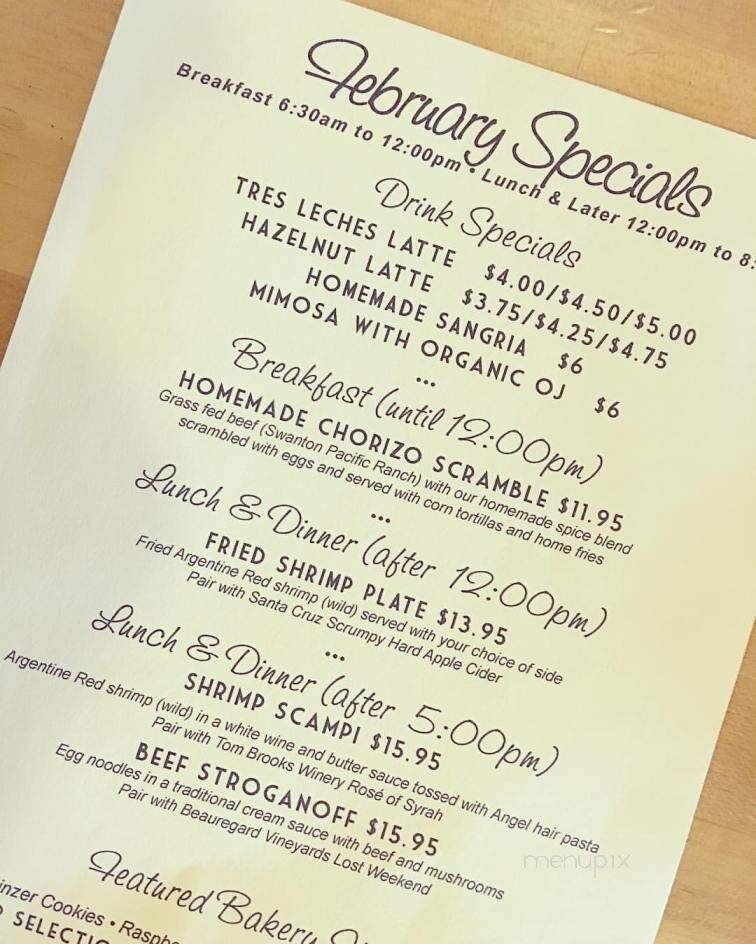 February Specials
Breakfast 6:30am to 12:00pm • Lunch & Later 12:00pm to 8:
Drink Specials
TRES LECHES LATTE $4.00/$4.50/$5.00
HAZELNUT LATTE $3.75/$4.25/$4.75
HOMEMADE SANGRIA $6
MIMOSA WITH ORGANIC OJ $6
...
Breakfast (until 12:00pm)
HOMEMADE CHORIZO SCRAMBLE $11.95
Grass fed beef (Swanton Pacific Ranch) with our homemade spice blend
scrambled with eggs and served with corn tortillas and home fries
...
Lunch & Dinner (after 12:00pm)
FRIED SHRIMP PLATE $13.95
Fried Argentine Red shrimp (wild) served with your choice of side
Pair with Santa Cruz Scrumpy Hard Apple Cider
...
Lunch & Dinner (after 5:00pm)
SHRIMP SCAMPI $15.95
Argentine Red shrimp (wild) in a white wine and butter sauce tossed with Angel hair pasta
Pair with Tom Brooks Winery Rosé of Syrah
BEEF STROGANOFF $15.95
Egg noodles in a traditional cream sauce with beef and mushrooms
Pair with Beauregard Vineyards Lost Weekend
menupix
Featured Bakery
inzer Cookies • Raspbe
SELECTIO